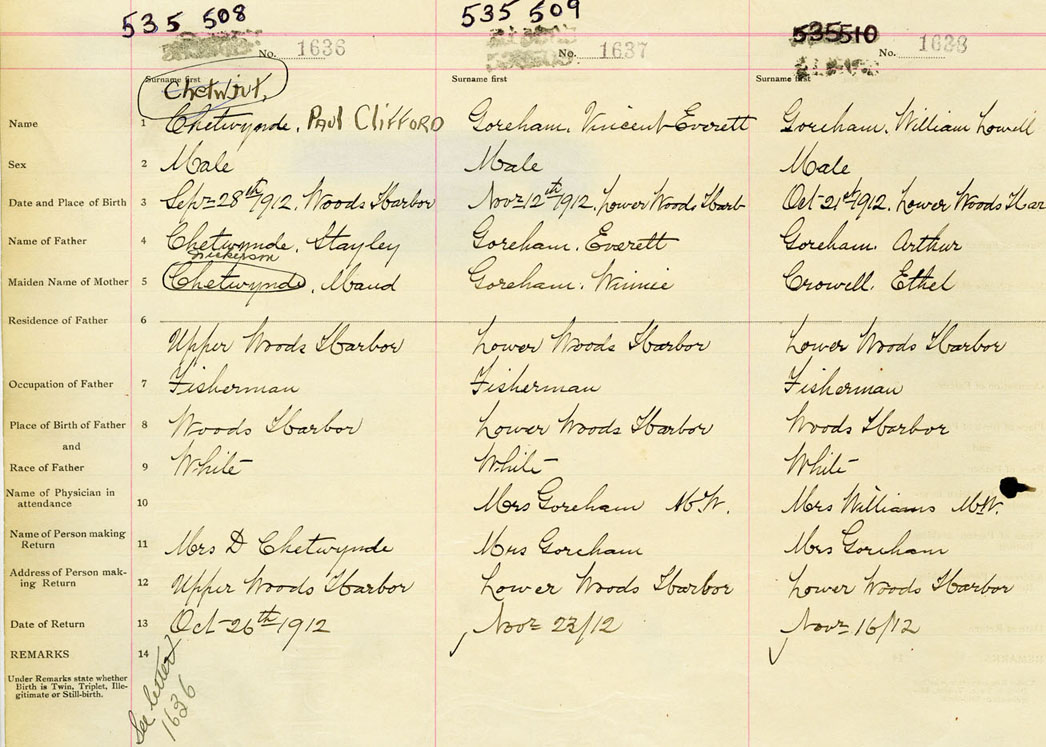 535 508 535 509 535510
No. 1636 No. 1637 No. 1638
Surname first Surname first Surname first
Chetwint,
Name 1 Chetwynde, Paul Clifford Goreham, Vincent Everett Goreham, William Lowell
Sex 2 Male Male Male
Date and Place of Birth 3 Sep= 28th 1912, Woods Harbor Nov= 12th 1912, Lower Woods Harb Oct- 21st 1912, Lower Woods Har
Name of Father 4 Chetwynde, Stayley Goreham, Everett Goreham, Arthur
Nickerson
Maiden Name of Mother 5 Chetwynde, Maud Goreham, Winnie Crowell, Ethel
Residence of Father 6
Upper Woods Harbor Lower Woods Harbor Lower Woods Harbor
Occupation of Father 7 Fisherman Fisherman Fisherman
Place of Birth of Father 8 Woods Harbor Lower Woods Harbor Woods Harbor
and
Race of Father 9 White White White
Name of Physician in
attendance 10 Mrs Goreham M.W. Mrs Williams M.W.
Name of Person making
Return 11 Mrs D Chetwynde Mrs Goreham Mrs Goreham
Address of Person mak-
ing Return 12 Upper Woods Harbor Lower Woods Harbor Lower Woods Harbor
Date of Return 13 Oct- 26th 1912 Nov= 23/12 Nov= 16/12
REMARKS 14
Under Remarks state whether
Birth is Twin, Triplet, Ille-
gitimate or Still-birth.
See letter
1636